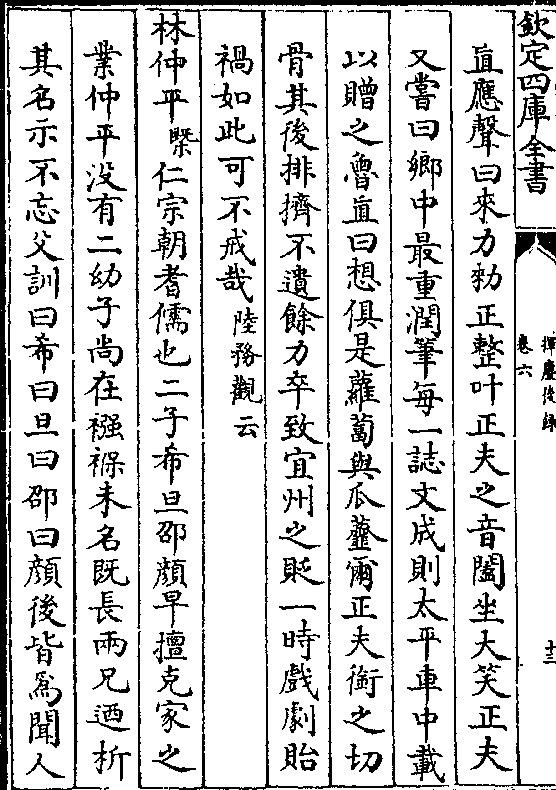 欽定四庫全書
揮麈後録
卷六
十三
直應聲曰來力勑正整叶正夫之音闔坐大笑正夫
又嘗曰鄉中最重潤筆每一誌文成則太平車中載
以贈之魯直曰想俱是蘿蔔與瓜虀爾正夫銜之切
骨其後排擠不遺餘力卒致宜州之貶一時戲劇貽
禍如此可不戒哉陸務觀云
林仲平槩仁宗朝耆儒也二子希旦邵顔早擅克家之
業仲平没有二幼子尚在襁褓未名既長兩兄廼析
其名示不忘父訓曰希曰旦曰邵曰顔後皆爲聞人